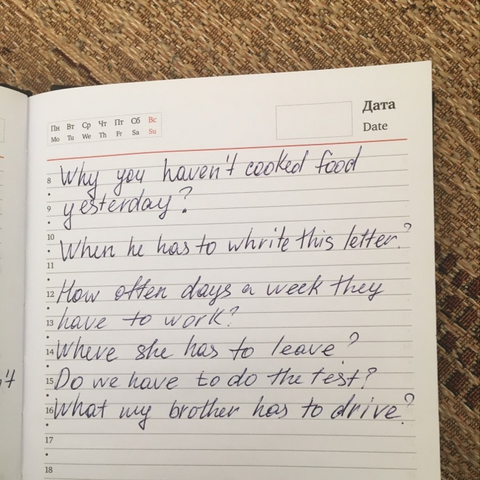 Дата
Date
Пн Вт Ср Чт Пт Сб Вс
Mo Tu We Th Fr Sa Su
8 Why you haven't cooked food
9 yesterday?
10
When he has to whrite this letter?
11
12 How often days a week they
13 have to work?
14 Where she has to leave?
15 Do we have to do the test?
16 What my brother has to drive?
17
18